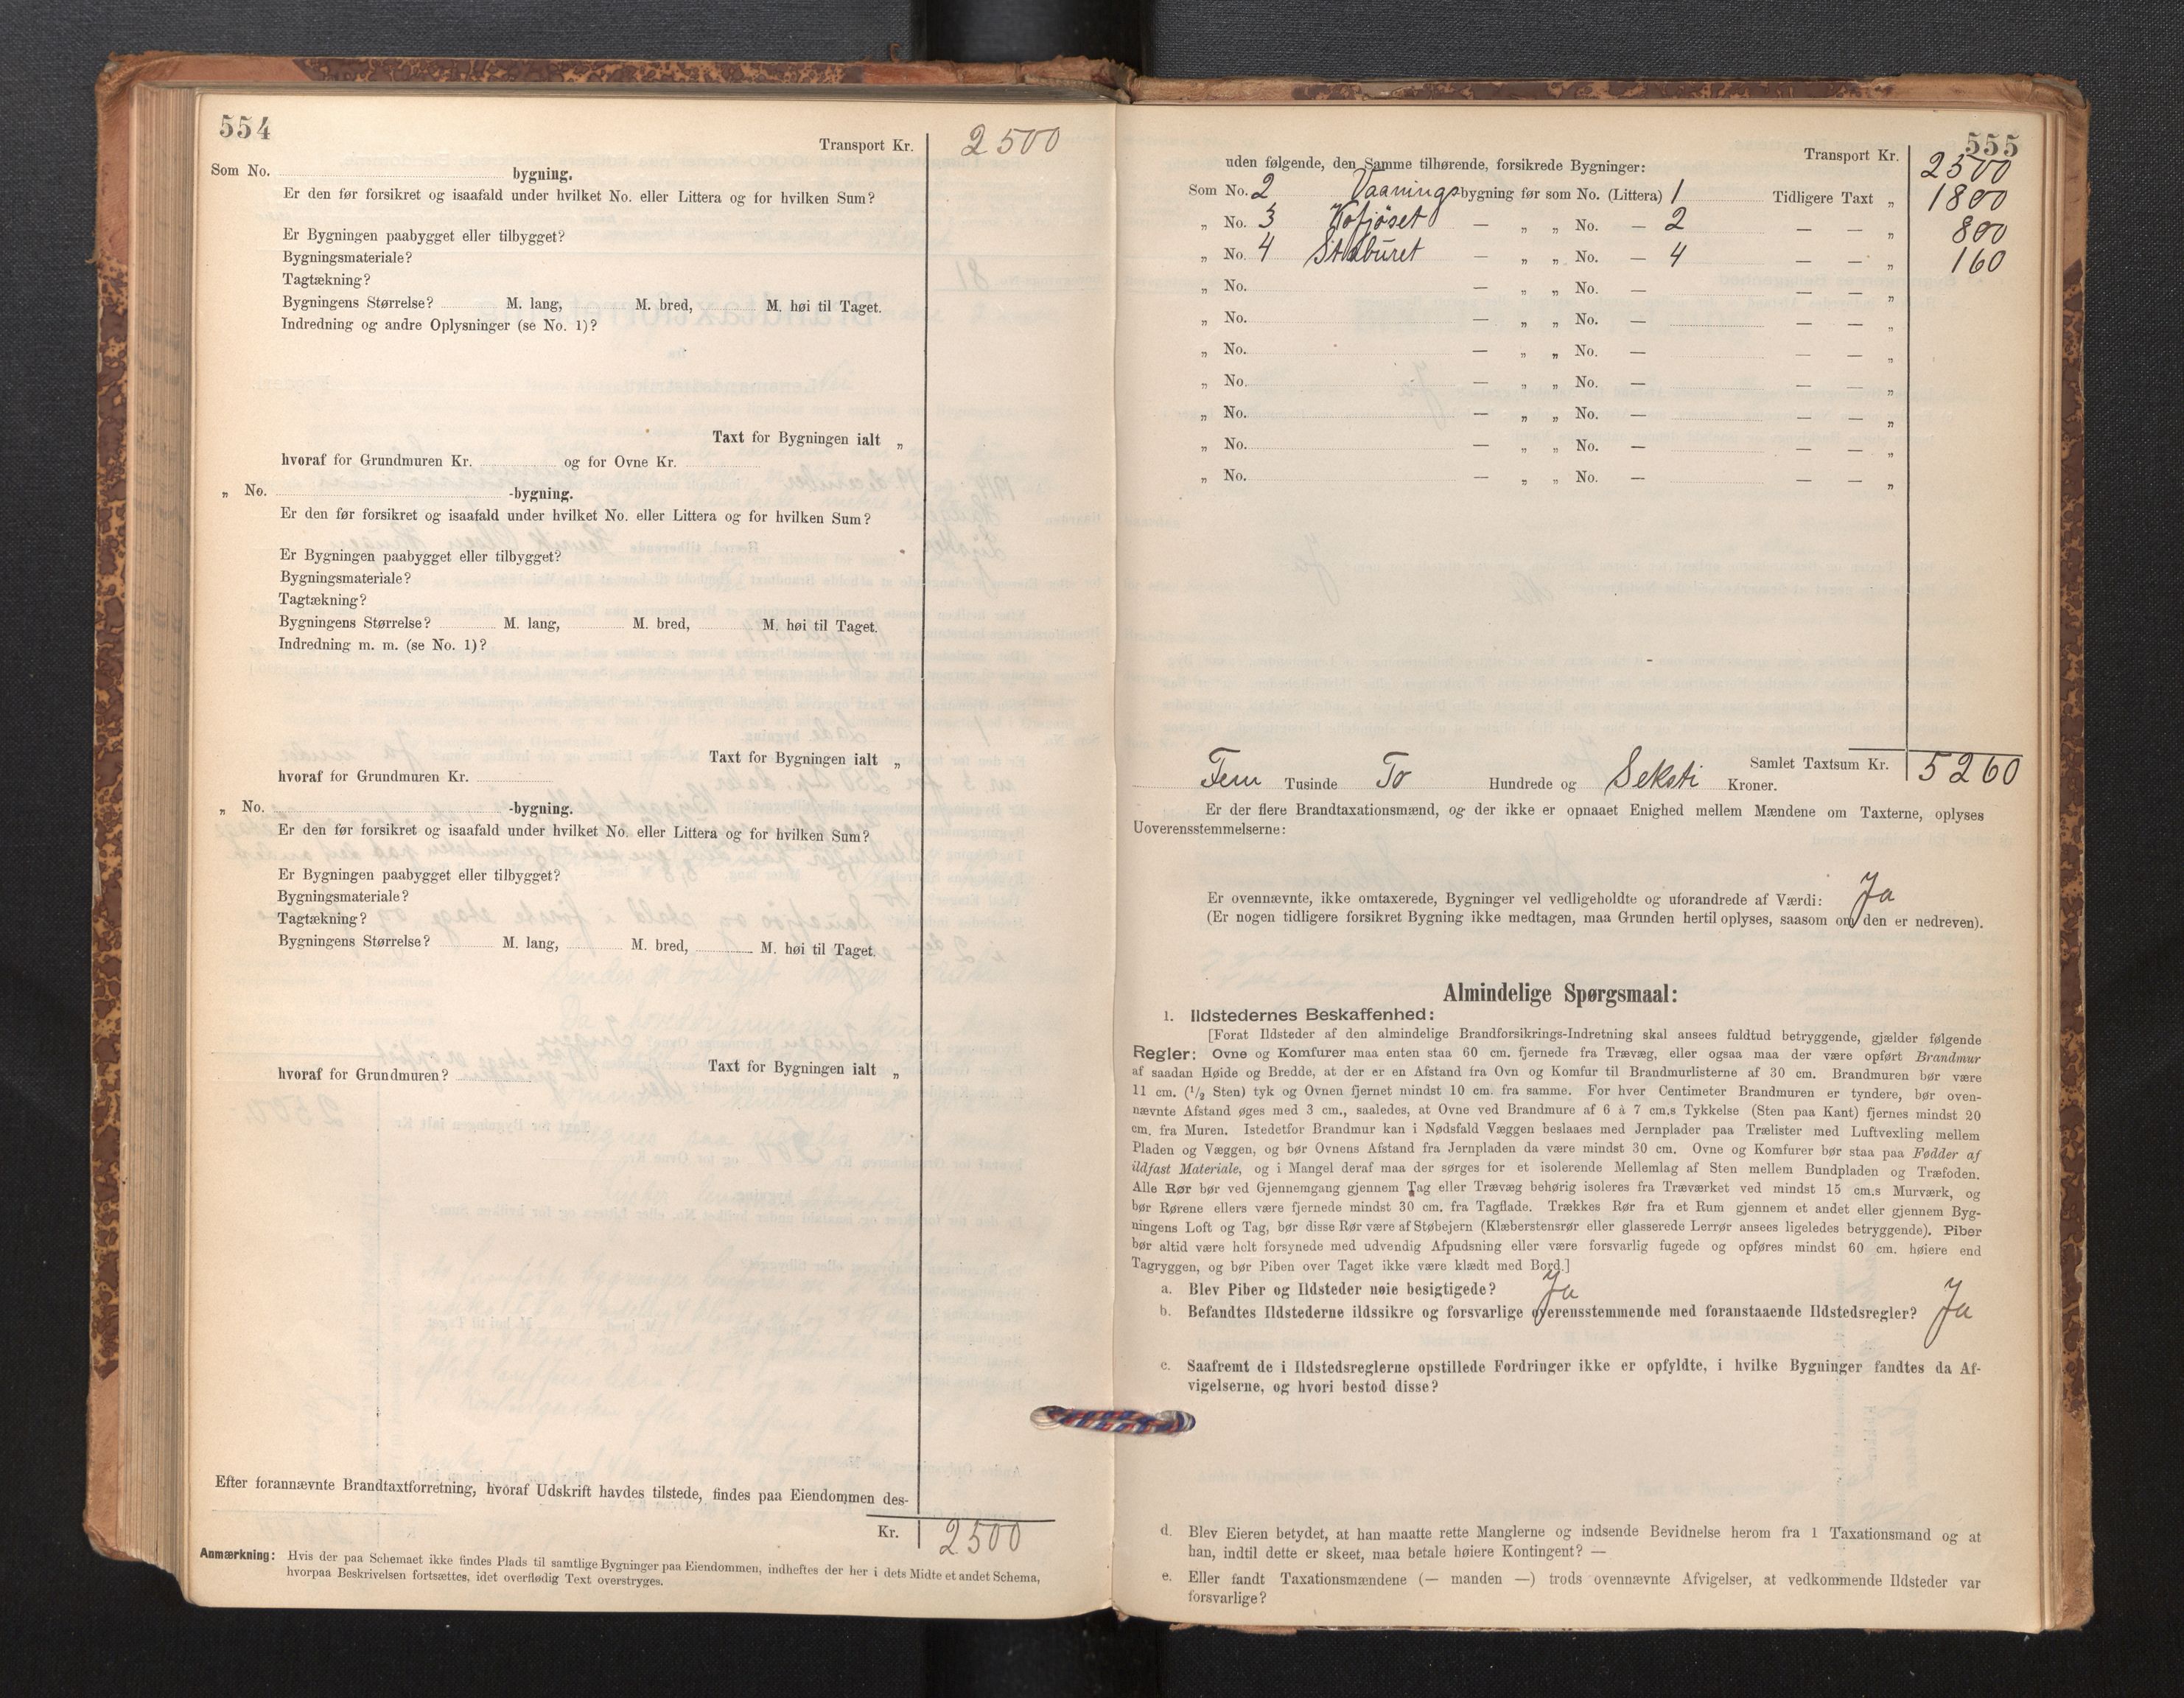 554
Transport Kr. 2500
Som No. bygning.
Er den før forsikret og isaafald under hvilket No. eller Littera og for hvilken Sum?
Er Bygningen paabygget eller tilbygget?
Bygningsmateriale?
Tagtækning?
Bygningens Størrelse? M. lang, M. bred, M. høi til Taget.
Indredning og andre Oplysninger (se No. 1)?
Taxt for Bygningen ialt „
hvoraf for Grundmuren Kr. og for Ovne Kr.
„ No. -bygning.
Er den før forsikret og isaafald under hvilket No. eller Littera og for hvilken Sum?
Er Bygningen paabygget eller tilbygget?
Bygningsmateriale?
Tagtækning?
Bygningens Størrelse? M. lang, M. bred, M. høi til Taget.
Indredning m. m. (se No. 1)?
Taxt for Bygningen ialt „
hvoraf for Grundmuren Kr.
„ No. -bygning.
Er den før forsikret og isaafald under hvilket No. eller Littera og for hvilken Sum?
Er Bygningen paabygget eller tilbygget?
Bygningsmateriale?
Tagtækning?
Bygningens Størrelse? M. lang, M. bred, M. høi til Taget.
Taxt for Bygningen ialt „
hvoraf for Grundmuren?
Efter forannævnte Brandtaxtforretning, hvoraf Udskrift havdes tilstede, findes paa Eiendommen des-
Kr. 2500
Anmærkning: Hvis der paa Schemaet ikke findes Plads til samtlige Bygninger paa Eiendommen, indheftes der her i dets Midte et andet Schema,
hvorpaa Beskrivelsen fortsættes, idet overflødig Text overstryges.
555
Transport Kr. 2500
uden følgende, den Samme tilhørende, forsikrede Bygninger:
Som No. 2 Vaaningsbygning før som No. (Littera) 1 Tidligere Taxt „ 1800
„ No. 3 Kofjøset — „ „ No. — 2 — — „ 800
„ No. 4 Stabüret — „ „ No. — 4 — — „ 160
„ No. — „ „ No. — — — „
„ No. — „ „ No. — — — „
„ No. — „ „ No. — — — „
„ No. — „ „ No. — — — „
„ No. — „ „ No. — — — „
„ No. — „ „ No. — — — „
„ No. — „ „ No. — — — „
Samlet Taxtsum Kr. 5260
Fem Tusinde To Hundrede og Seksti Kroner.
Er der flere Brandtaxationsmænd, og der ikke er opnaaet Enighed mellem Mændene om Taxterne, oplyses
Uoverensstemmelserne:
Er ovennævnte, ikke omtaxerede, Bygninger vel vedligeholdte og uforandrede af Værdi: Ja
(Er nogen tidligere forsikret Bygning ikke medtagen, maa Grunden hertil oplyses, saasom om den er nedreven).
Almindelige Spørgsmaal:
1. Ildstedernes Beskaffenhed:
[Forat Ildsteder af den almindelige Brandforsikrings-Indretning skal ansees fuldtud betryggende, gjælder følgende
Regler: Ovne og Komfurer maa enten staa 60 cm. fjernede fra Trævæg, eller ogsaa maa der være opført Brandmur
af saadan Høide og Bredde, at der er en Afstand fra Ovn og Komfur til Brandmurlisterne af 30 cm. Brandmuren bør være
11 cm. (1/2 Sten) tyk og Ovnen fjernet mindst 10 cm. fra samme. For hver Centimeter Brandmuren er tyndere, bør oven-
nævnte Afstand øges med 3 cm., saaledes, at Ovne ved Brandmure af 6 à 7 cm.s Tykkelse (Sten paa Kant) fjernes mindst 20
cm. fra Muren. Istedetfor Brandmur kan i Nødsfald Væggen beslaaes med Jernplader paa Trælister med Luftvexling mellem
Pladen og Væggen, og bør Ovnens Afstand fra Jernpladen da være mindst 30 cm. Ovne og Komfurer bør staa paa Fødder af
ildfast Materiale, og i Mangel deraf maa der sørges for et isolerende Mellemlag af Sten mellem Bundpladen og Træfoden.
Alle Rør bør ved Gjennemgang gjennem Tag eller Trævæg behørig isoleres fra Træværket ved mindst 15 cm.s Murværk, og
bør Rørene ellers være fjernede mindst 30 cm. fra Tagflade. Trækkes Rør fra et Rum gjennem et andet eller gjennem Byg-
ningens Loft og Tag, bør disse Rør være af Støbejern (Klæberstensrør eller glasserede Lerrør ansees ligeledes betryggende). Piber
bør altid være helt forsynede med udvendig Afpudsning eller være forsvarlig fugede og opføres mindst 60 cm. høiere end
Tagryggen, og bør Piben over Taget ikke være klædt med Bord.]
a. Blev Piber og Ildsteder nøie besigtigede? Ja
b. Befandtes Ildstederne ildssikre og forsvarlige overensstemmende med foranstaaende Ildstedsregler? Ja
c. Saafremt de i Ildstedsreglerne opstillede Fordringer ikke er opfyldte, i hvilke Bygninger fandtes da Af-
vigelserne, og hvori bestod disse?
d. Blev Eieren betydet, at han maatte rette Manglerne og indsende Bevidnelse herom fra 1 Taxationsmand og at
han, indtil dette er skeet, maa betale høiere Kontingent? —
e. Eller fandt Taxationsmændene (— manden —) trods ovennævnte Afvigelser, at vedkommende Ildsteder var
forsvarlige?